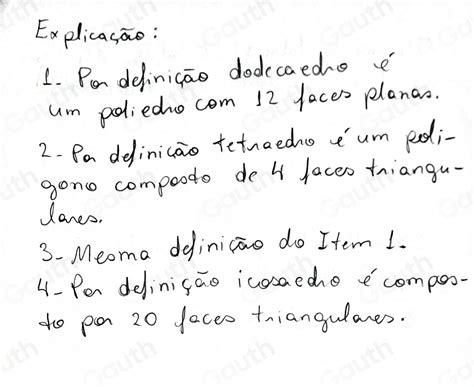 Explicação:
1- Por definição dodecaedro é
um poliedro com 12 faces planas.
2- Por definição tetraedro é um polí-
gono composto de 4 faces triangu-
lares.
3- Mesma definição do Item 1.
4- Por definição icosaedro é compos-
to por 20 faces triangulares.